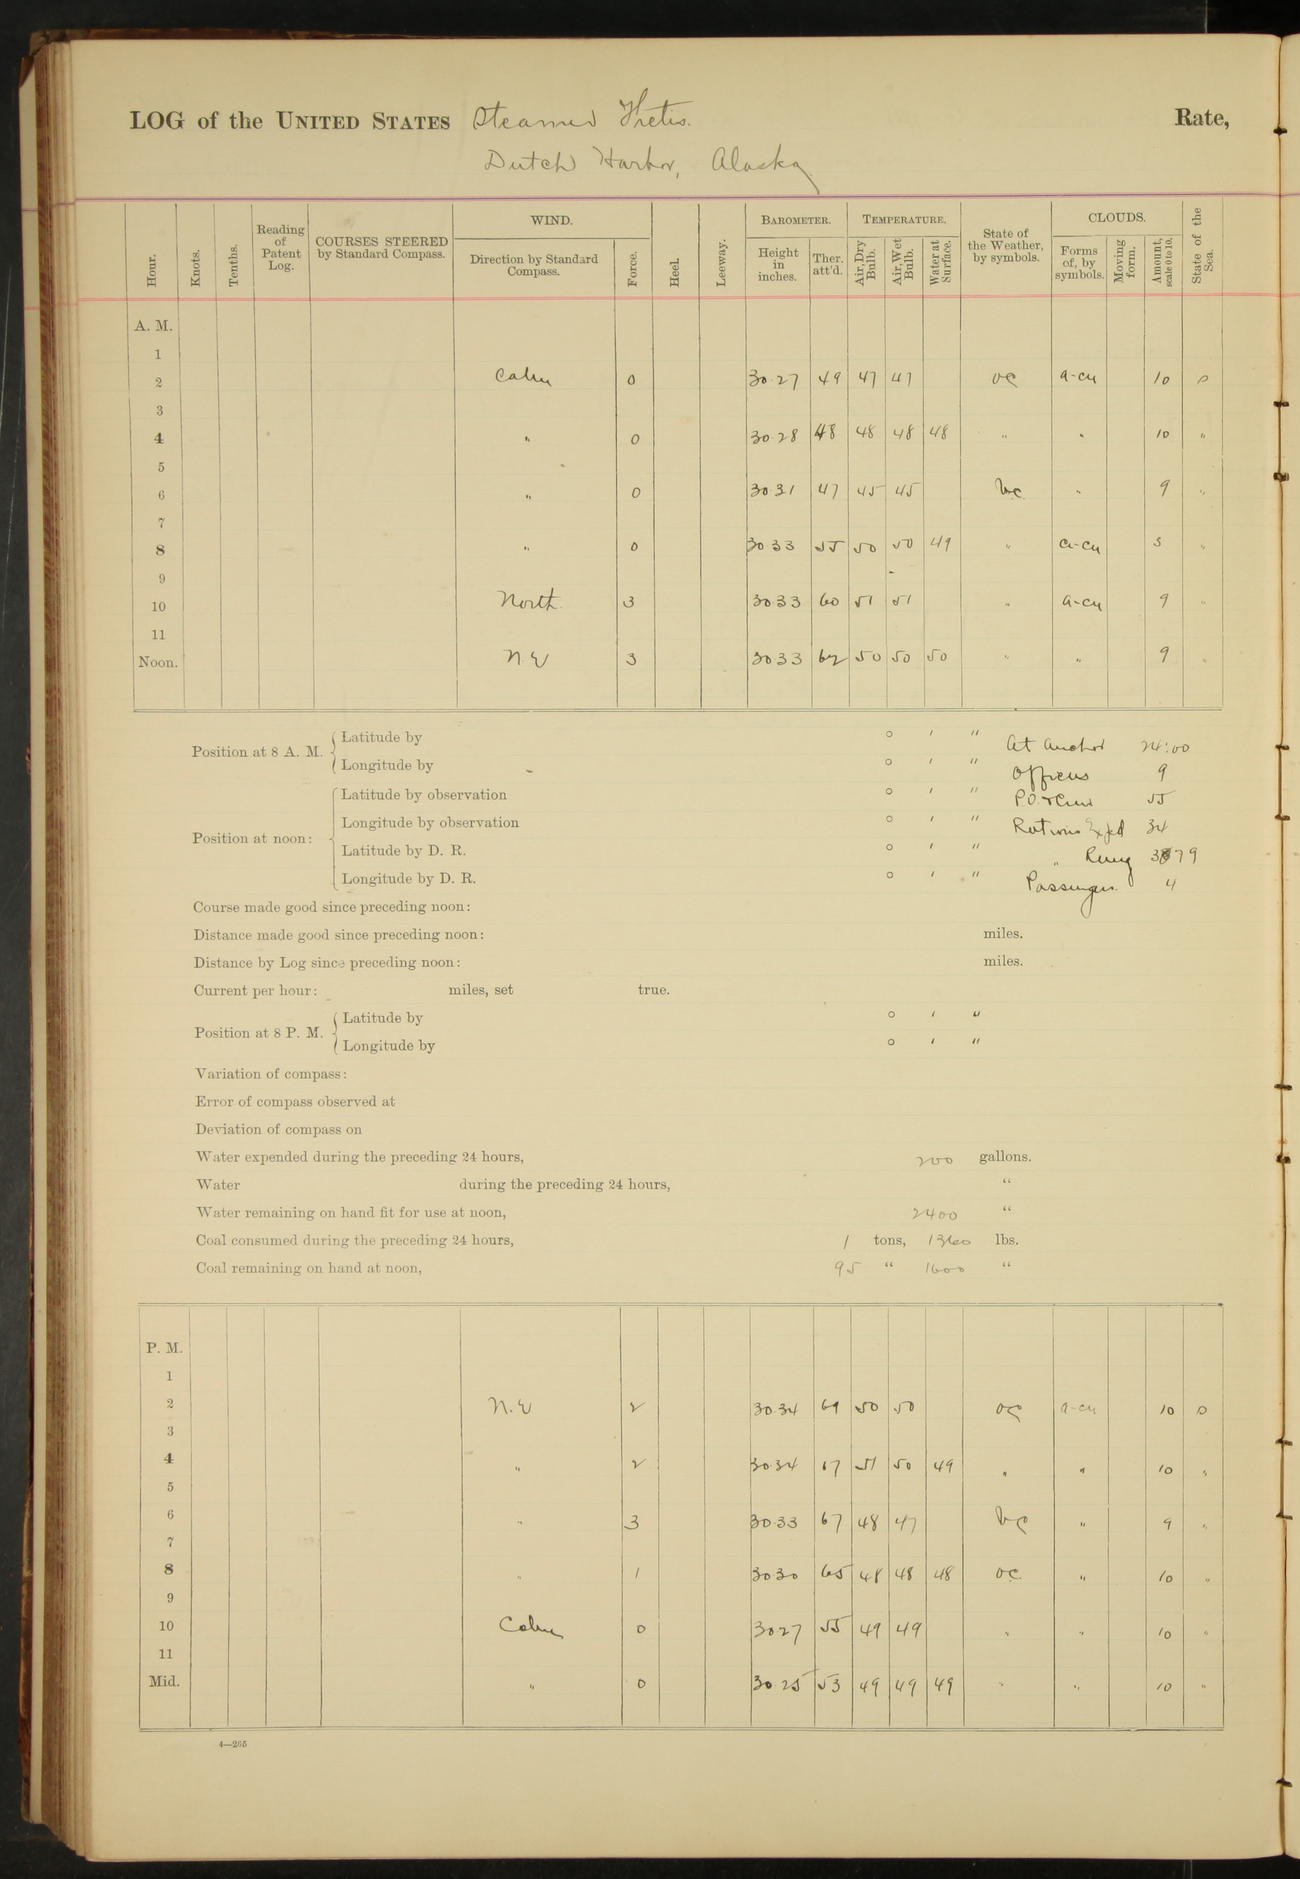 LOG of the UNITED STATES Steamer Thetis. Rate,
Dutch Harbor, Alaska
Hour. Knots. Tenths. Reading of Patent Log. COURSES STEERED by Standard Compass. WIND. Direction by Standard Compass. Force. Heel. Leeway. BAROMETER. Height in inches. Ther. att'd. TEMPERATURE. Air, Dry Bulb. Air, Wet Bulb. Water at Surface. State of the Weather, by symbols. CLOUDS. Forms of, by symbols. Moving form. Amount, scale 0 to 10. State of the Sea.
A. M.
1
2 Calm 0 30.27 49 47 47 oc a-cu 10 0
3
4 " 0 30.28 48 48 48 48 " " 10 "
5
6 " 0 30.31 47 45 45 bc " 9 "
7
8 " 0 30 33 55 50 50 49 " ci-cu 5 "
9
10 North 3 30.33 60 51 51 " a-cu 9 "
11
Noon. N E 3 30 33 62 50 50 50 " " 9 "
Position at 8 A. M. Latitude by ° ′ ″ At Anchor 24:00
Longitude by ° ′ ″ Officers 9
Position at noon: Latitude by observation ° ′ ″ P.O. & Crew 55
Longitude by observation ° ′ ″ Rations Exp'd 34
Latitude by D. R. ° ′ ″ " Rmg 3879
Longitude by D. R. ° ′ ″ Passengers 4
Course made good since preceding noon:
Distance made good since preceding noon: miles.
Distance by Log since preceding noon: miles.
Current per hour: miles, set true.
Position at 8 P. M. Latitude by ° ′ ″
Longitude by ° ′ ″
Variation of compass:
Error of compass observed at
Deviation of compass on
Water expended during the preceding 24 hours, 200 gallons.
Water during the preceding 24 hours, "
Water remaining on hand fit for use at noon, 2400 "
Coal consumed during the preceding 24 hours, 1 tons, 1360 lbs.
Coal remaining on hand at noon, 95 " 1600 "
P. M.
1
2 N. E 2 30 34 69 50 50 oc a-cu 10 0
3
4 " 2 30.34 67 51 50 49 " " 10 "
5
6 " 3 30.33 67 48 47 bc " 9 "
7
8 " 1 30 30 65 48 48 48 oc " 10 "
9
10 Calm 0 30 27 55 49 49 " " 10 "
11
Mid. " 0 30.25 53 49 49 49 " " 10 "
4—265